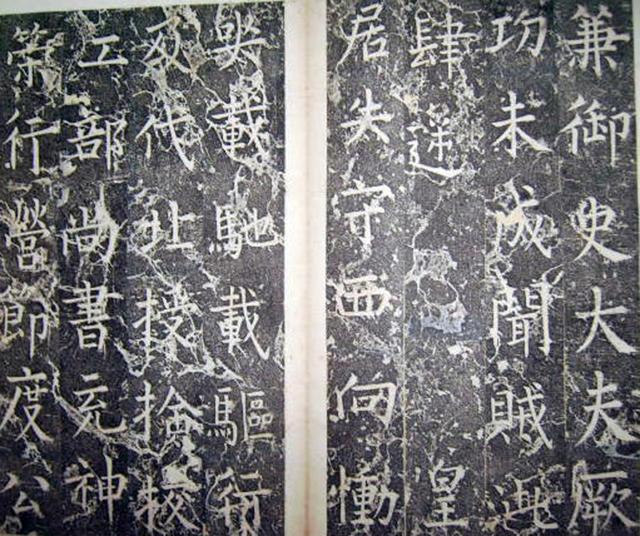 兼御史大夫厥
功未成聞賊泚
肆皇
居失守西向慟
哭載馳載驅行
及代北授撿挍
工部尚書充神
策行營節度公